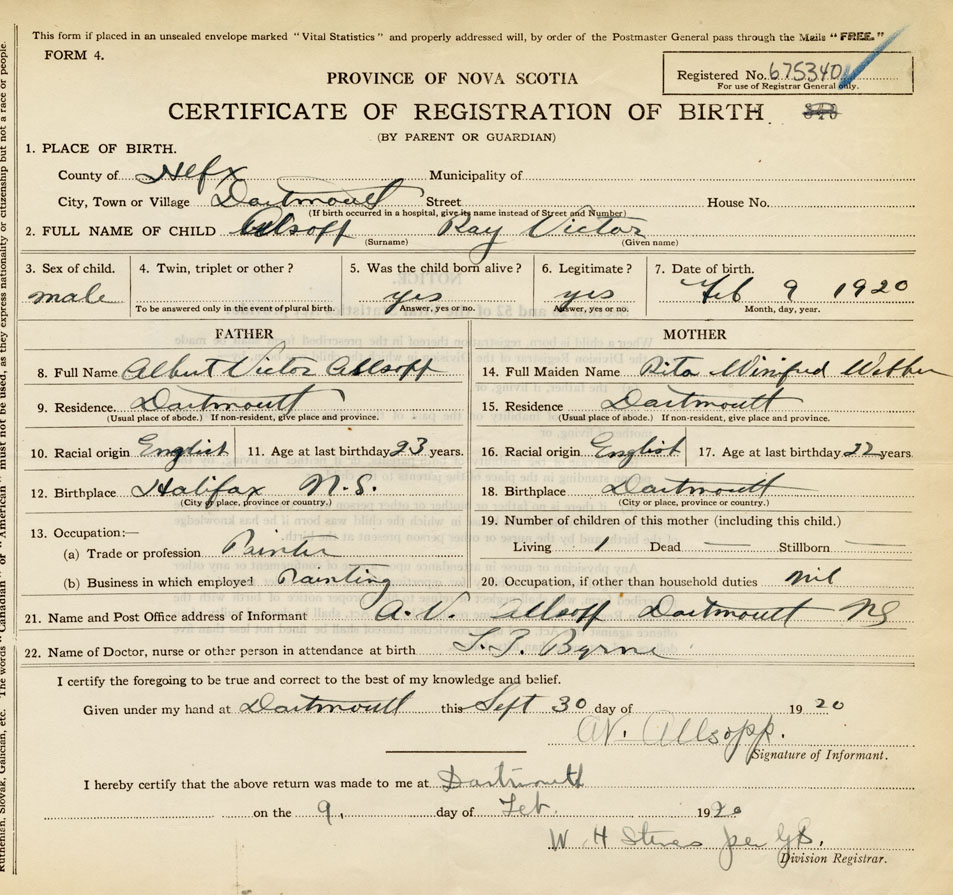 This form if placed in an unsealed envelope marked "Vital Statistics" and properly addressed will, by order of the Postmaster General pass through the Mails "FREE."
FORM 4.
PROVINCE OF NOVA SCOTIA
Registered No. 675340
For use of Registrar General only.
CERTIFICATE OF REGISTRATION OF BIRTH
(BY PARENT OR GUARDIAN)
1. PLACE OF BIRTH.
County of Hlfx Municipality of
City, Town or Village Dartmouth Street House No.
(If birth occurred in a hospital, give its name instead of Street and Number)
2. FULL NAME OF CHILD Allsopp Ray Victor
(Surname) (Given name)
3. Sex of child. 4. Twin, triplet or other? 5. Was the child born alive? 6. Legitimate? 7. Date of birth.
male yes yes Feb 9 1920
To be answered only in the event of plural birth. Answer, yes or no. Answer, yes or no. Month, day, year.
FATHER MOTHER
8. Full Name Albert Victor Allsopp 14. Full Maiden Name Rita Winifred Webber
9. Residence Dartmouth 15. Residence Dartmouth
(Usual place of abode.) If non-resident, give place and province. (Usual place of abode.) If non-resident, give place and province.
10. Racial origin English 11. Age at last birthday 23 years. 16. Racial origin English 17. Age at last birthday 22 years
12. Birthplace Halifax N.S. 18. Birthplace Dartmouth
(City or place, province or country.) (City or place, province or country.)
13. Occupation:— 19. Number of children of this mother (including this child.)
(a) Trade or profession Painter Living 1 Dead — Stillborn —
(b) Business in which employed Painting 20. Occupation, if other than household duties nil
21. Name and Post Office address of Informant A. V. Allsopp Dartmouth NS
22. Name of Doctor, nurse or other person in attendance at birth Byrne
I certify the foregoing to be true and correct to the best of my knowledge and belief.
Given under my hand at Dartmouth this Sept 30 day of 1920
AV. Allsopp.
Signature of Informant.
I hereby certify that the above return was made to me at Dartmouth
on the 9, day of Feb. 1920
W H Sterns per
Division Registrar.
The words "Canadian" or "American" must not be used, as they express nationality or citizenship but not a race or people.
Ruthenian, Slovak, Galician, etc.